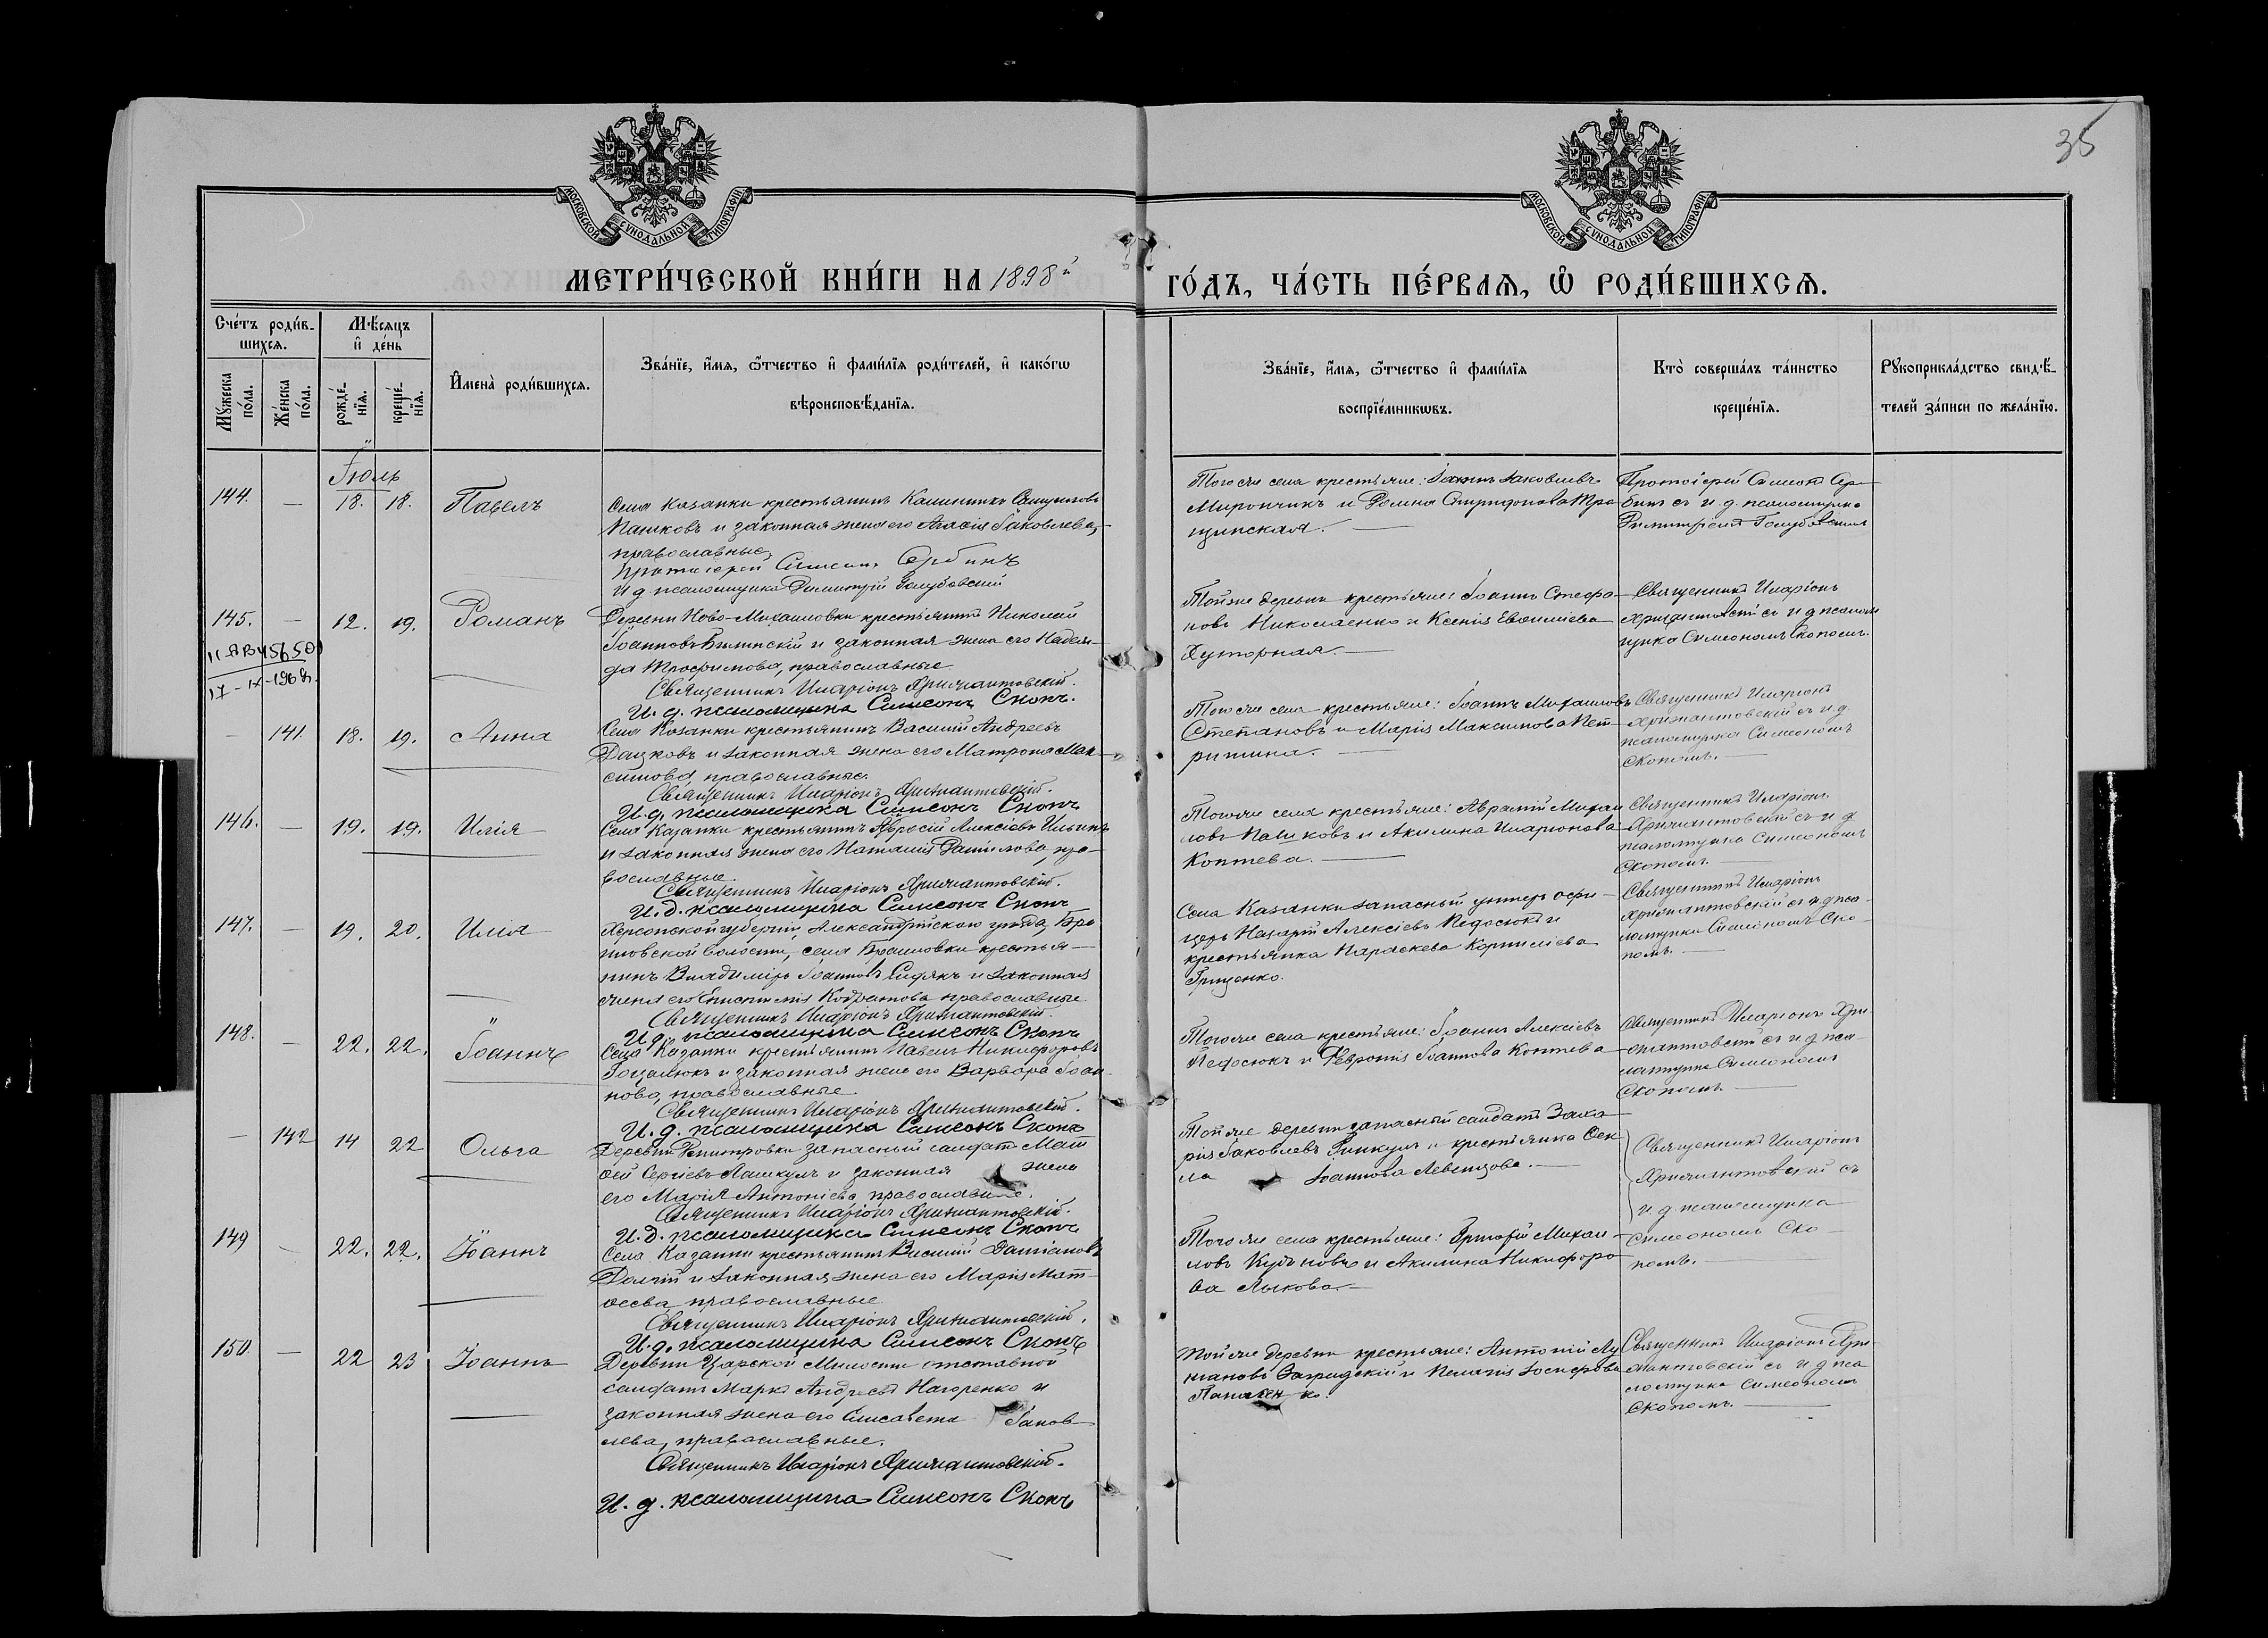 35
МОСКОВСКОЙ СѴНОДАЛЬНОЙ ТИПОГРАФІИ
МОСКОВСКОЙ СѴНОДАЛЬНОЙ ТИПОГРАФІИ
МЕТРИ́ЧЕСКОЙ КНИ́ГИ НА 1898й
ГО́ДЪ, ЧА́СТЬ ПЕ́РВАѦ, Ѡ҆ РОДИ́ВШИХСѦ.
Сче́тъ роди́в-
шихсѧ.
Мꙋ́жеска по́ла.
Же́нска по́ла.
Мѣ́сѧцъ
и҆ де́нь
рожде́-
нїѧ.
креще́-
нїѧ.
И҆мена̀ роди́вшихсѧ.
Зва́нїе, и҆́мѧ, ѻ҆́тчество и҆ фами́лїѧ роди́телей, и҆ како́гѡ
вѣроисповѣ́данїѧ.
Зва́нїе, и҆́мѧ, ѻ҆́тчество и҆ фами́лїѧ
воспрїе́мникѡвъ.
Кто̀ соверша́лъ та́инство
креще́нїѧ.
Рꙋкоприкла́дство свидѣ́-
телей за́писи по жела́нїю.
Іюль
144. — 18. 18. Павелъ
Села Казанки крестьянинъ Каллиникъ
Пашковъ и законная жена его Іаковлева,
православные
Протоіерей Симеонъ Сербинъ
И д псаломщика Димитрій Голубовскій
Того же села крестьяне: Іоаннъ Іаковлевъ
Мирончикъ и Домна Спиридонова Тра-
щинская.
Протоіерей Симеонъ Сер-
бинъ съ и. д. псаломщика
Димитріемъ Голубовскимъ
145. — 12. 19. Романъ
17-IX-196
Деревни Ново-Михаиловки крестьянинъ Николай
Іоанновъ Билинскій и законная жена его Надеж-
да Трофимова, православные
Священникъ Иларіонъ Хрисантовскій.
И. д. псаломщика Симеонъ Скопъ.
Той же деревни крестьяне: Іоаннъ Стефа-
новъ Николаенко и Ксенія Евфиміева
Хуторная.
Священникъ Иларіонъ
Хрисантовскій съ и д псалом
щика Симеономъ Скопомъ.
— 141. 18. 19. Анна
Села Казанки крестьянинъ Василій Андреевъ
Дацковъ и законная жена его Матрона Мак-
симова, православные.
Священникъ Иларіонъ Хрисантовскій.
И. д. псаломщика Симеонъ Скопъ
Того же села крестьяне: Іоаннъ Михаиловъ
Степановъ и Марія Максимова Пет-
ришина.
Священникъ Иларіонъ
Хрисантовскій съ и. д.
псаломщика Симеономъ
Скопомъ.
146. — 19. 19. Илія
Села Казанки крестьянинъ Алексіевъ Ильинъ
и законная жена его Наталія Данилова, пра-
вославные.
Священникъ Иларіонъ Хрисантовскій.
И. д. псаломщика Симеонъ Скопъ
Того же села крестьяне: Аврамій Михаи
ловъ Пашковъ и Акилина Иларіонова
Коптева.
Священникъ Иларіонъ
Хрисантовскій съ и д
псаломщика Симеономъ
Скопомъ.
147. — 19. 20. Илія
Херсонской губерніи, Александрійскаго уѣзда,
волости, села крестья-
нинъ Владиміръ Іоанновъ и законная
жена его Епистимія Кодратова православные
Священникъ Иларіонъ Хрисантовскій.
И. д. псаломщика Симеонъ Скопъ
Села Казанки запасный унтеръ офи-
церъ Назарій Алексіевъ Педосюкъ и
крестьянка Параскева Корниліева
Грищенко.
Священникъ Иларіонъ
Хрисантовскій съ и д пса-
ломщика Симеономъ Ско-
помъ.
148. — 22. 22. Іоаннъ
Села Казанки крестьянинъ Павелъ Никифоровъ
и законная жена его Варвара Іоан-
нова, православные
Священникъ Иларіонъ Хрисантовскій.
И. д. псаломщика Симеонъ Скопъ
Того же села крестьяне: Іоаннъ Алексіевъ
Педосюкъ и Февронія Іоаннова Коптева
Священникъ Иларіонъ Хри-
сантовскій съ и д пса-
ломщика Симеономъ
Скопомъ.
— 142 14 22 Ольга
Деревни запасный солдатъ Мат
ѳей Сергіевъ и законная жена
его Марія Антоніева, православные.
Священникъ Иларіонъ Хрисантовскій.
И. д. псаломщика Симеонъ Скопъ
Той же деревни запасный солдатъ Заха-
рія Іаковлевъ и крестьянка Фек
ла Іоаннова Левенцова.
Священникъ Иларіонъ
Хрисантовскій съ
и д псаломщика
Симеономъ Ско-
помъ.
149 — 22. 22. Іоаннъ
Села Казанки крестьянинъ Василій Даміановъ
Долгій и законная жена его Марія Мат-
ѳеева православные
Священникъ Иларіонъ Хрисантовскій.
И. д. псаломщика Симеонъ Скопъ
Того же села крестьяне: Григорій Михаи-
ловъ и Акилина Никифоро
ва Лыкова.
150. — 22 23 Іоаннъ
Деревни Царской Милости отставной
солдатъ Маркъ Андреевъ Нагоренко и
законная жена его Елисавета Іаков-
лева, православные.
Священникъ Иларіонъ Хрисантовскій.
И. д. псаломщика Симеонъ Скопъ
Той же деревни крестьяне: Антоній Лу
кіановъ и Пелагія Іосифова
Священникъ Иларіонъ Хри-
сантовскій съ и д пса
ломщика Симеономъ
Скопомъ.